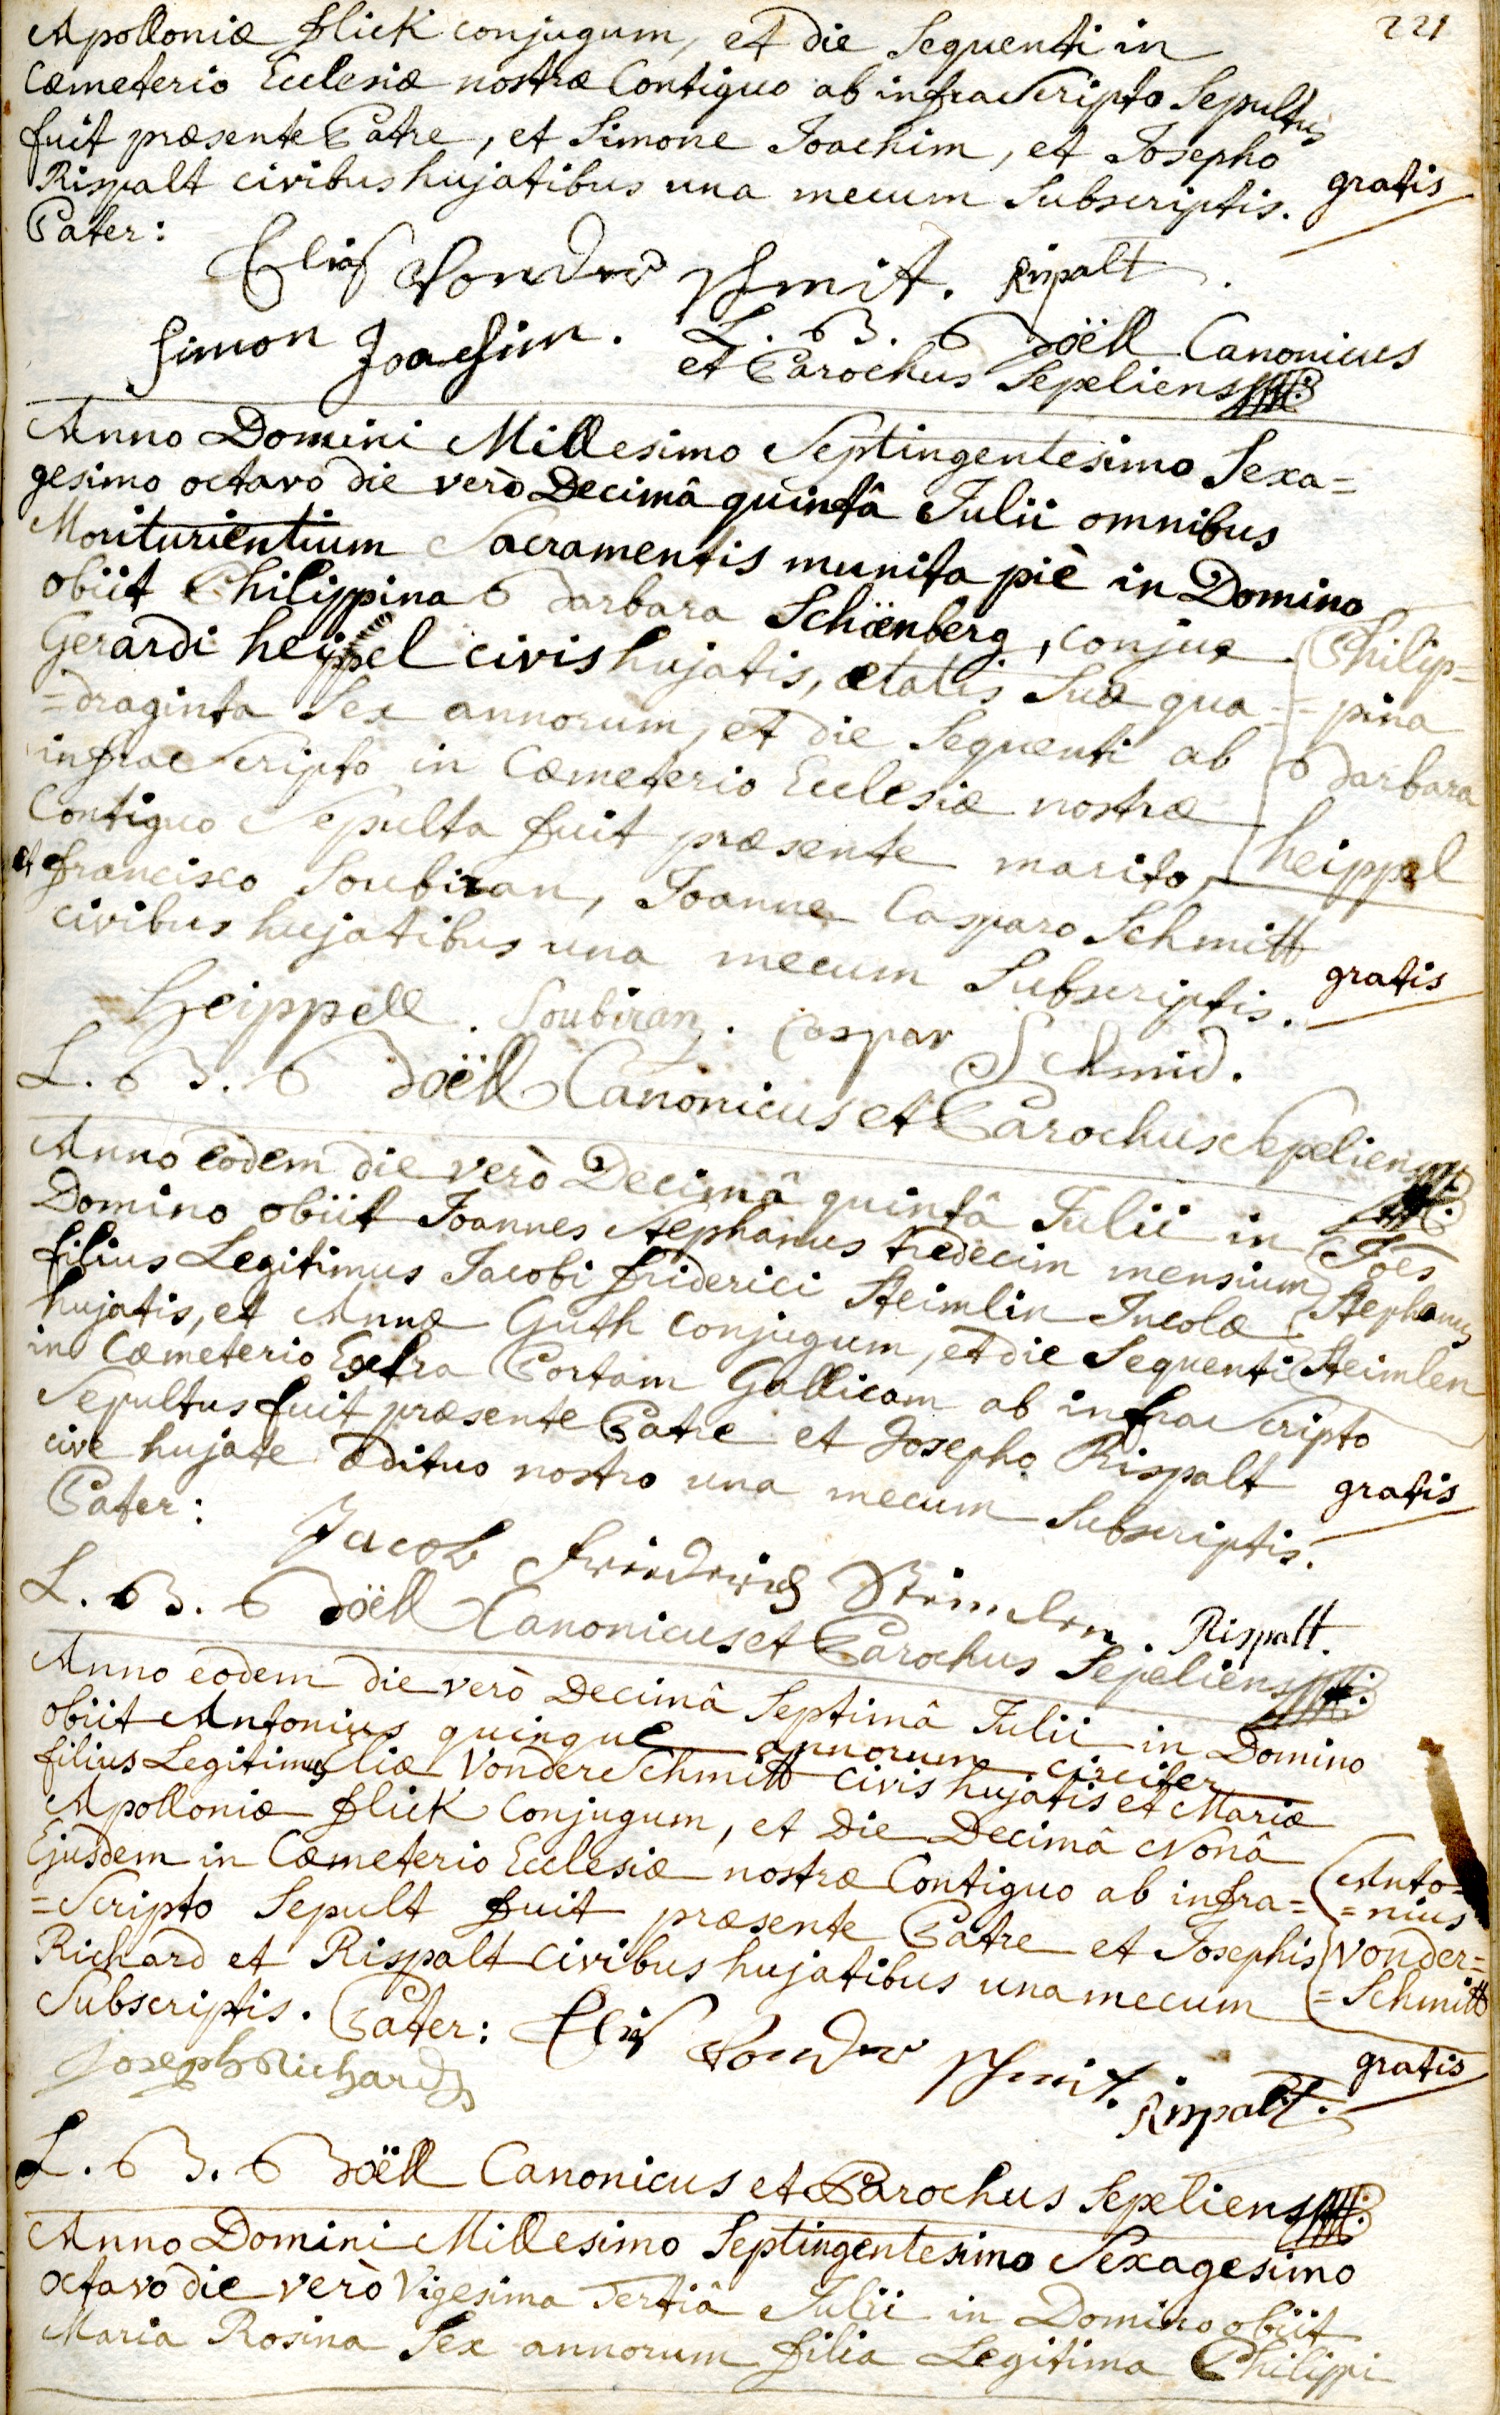 221
Apolloniæ flick conjugum, et die Sequenti in
Cœmeterio Ecclesiæ nostræ Contiguo ab infra Scripto Sepultus
fuit præsente Patre, et Simone Joachim, et Josepho
Rispalt civibus hujatibus una mecum Subscriptis. gratis
Pater:
Elias Vonder Schmit. Rispalt.
Simon Joachim. L. B. Boëll Canonicus
et Parochus Sepeliens
Anno Domini Millesimo Septingentesimo Sexa=
gesimo octavo die verò Decimâ quintâ Julii omnibus
Moriturientium Sacramentis munita piè in Domino
obiit Philippina Barbara Schöenberg, conjux
Gerardi heippel civis hujatis, ætatis Suæ qua=
=draginta Sex annorum, et die Sequenti ab
infra Scripto in Cœmeterio Ecclesiæ nostræ
Contiguo Sepulta fuit præsente marito,
et francisco Soubiran, Joanne Casparo Schmitt
civibus hujatibus una mecum Subscriptis.
Philip=
=pina
Barbara
heippel
gratis
Heippell. Soubiran. Caspar Schmid.
L. B. Boëll Canonicus et Parochus Sepeliens
Anno eodem die verò Decimâ quintâ Julii in
Domino obiit Joannes Stephanus tredecim mensium
filius Legitimus Jacobi friderici Steimlin Incolæ
hujatis, et Annæ Guth conjugum, et die Sequenti
in Cœmeterio Extra Portam Gallicam ab infra Scripto
Sepultus fuit præsente Patre et Josepho Rispalt
cive hujate ædituo nostro una mecum Subscriptis.
Joes
Stephanus
Steimlen
gratis
Pater: Jacob Friedrich Steimlen. Rispalt.
L. B. Boëll Canonicus et Parochus Sepeliens
Anno eodem die verò Decimâ Septimâ Julii in Domino
obiit Antonius quinque annorum circiter
filius Legitimus Eliæ Vonder Schmitt civis hujatis et Mariæ
Apolloniæ flick Conjugum, et Die Decimâ Nonâ
Ejusdem in Cœmeterio Ecclesiæ nostræ Contiguo ab infra=
=Scripto Sepult fuit præsente Patre et Josephis
Richard et Rispalt civibus hujatibus una mecum
Subscriptis. Pater: Elias Vonder Schmit. Rispalt.
Anto=
=nius
Vonder=
=Schmitt
gratis
Joseph Richard
L. B. Boëll Canonicus et Parochus Sepeliens
Anno Domini Millesimo Septingentesimo Sexagesimo
octavo die verò Vigesima Tertiâ Julii in Domino obiit
Maria Rosina Sex annorum filia Legitima Philippi